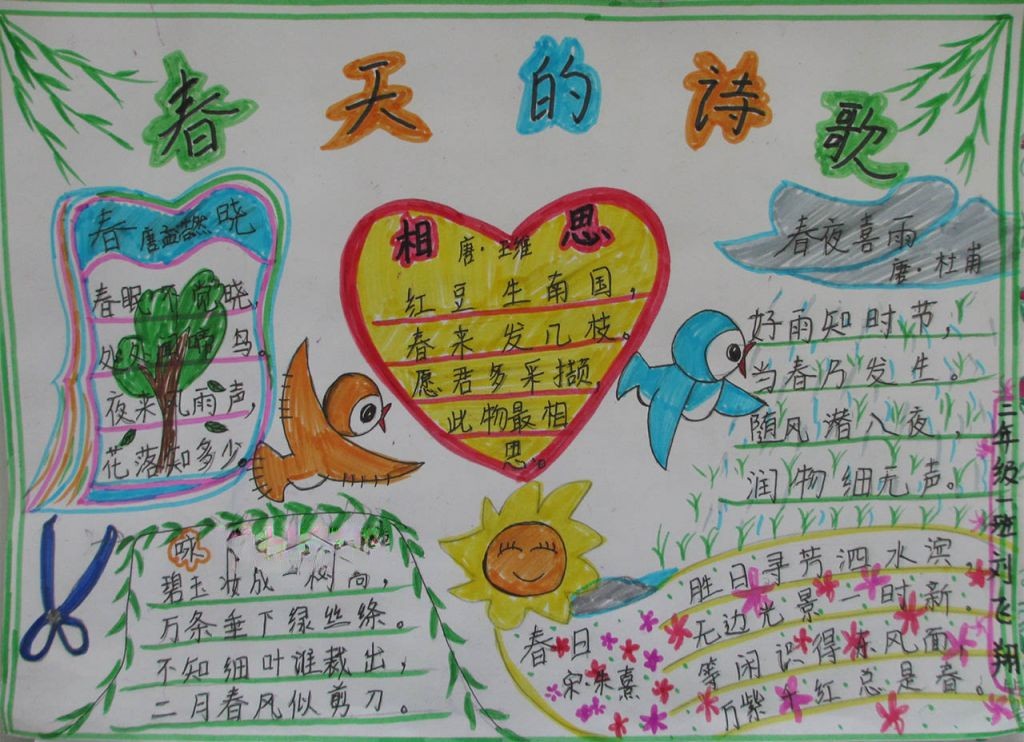 春天的诗歌
春晓
唐孟浩然
春眠不觉晓，
处处啼鸟。
夜来风雨声，
花落知多少。
相思
唐·王维
红豆生南国，
春来发几枝。
愿君多采撷，
此物最相
思。
春夜喜雨
唐·杜甫
好雨知时节，
当春乃发生。
随风潜八夜，
润物细无声。
咏
碧玉妆成一树向，
万条垂下绿丝绦。
不知细叶谁裁出，
二月春风似剪刀。
春日
宋朱熹
胜日寻芳泗水滨
无边光景一时新.
等闲识得东风面，
万紫千红总是春。
三年级一班刘飞翔